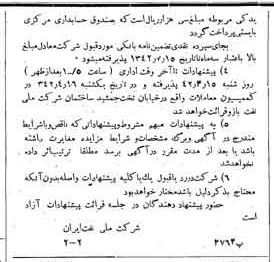 یدکی مربوطه مبلغ سی هزار ریال است که بصندوق حسابداری مرکزی
بایستی پرداخت گردد
بجای سپرده نقدی تضمین نامه بانکی مورد قبول شرکت معادل مبلغ
بالا با اعتبار سه ماهه تا تاریخ ۱۳۴۲٫۷٫۱۵ پذیرفته میشود
۴) پیشنهادات تا آخر وقت اداری (ساعت ۵٫۰۰ بعد از ظهر)
روز شنبه ۴۲٫۴٫۱۵ پذیرفته و در تاریخ یکشنبه ۱۳۴۲٫۴٫۱۶ در
کمیسیون معاملات واقع در خیابان تخت جمشید ساختمان شرکت ملی
نفت باز و قرائت خواهد شد
۵) به پیشنهادات مبهم مشروط و پیشنهاداتی که ناقص و با شرایط
مندرج در آگهی و برگ مشخصات و شرایط مزایده مغایرت داشته
باشد یا بعد از مدت مقرر در آگهی برسد مطلقا ترتیب اثر داده
نخواهد شد
۶) شرکت در رد یا قبول یک یا کلیه پیشنهادات واصله بدون آنکه
محتاج بذکر دلیل باشد مختار خواهد بود
حضور پیشنهاد دهندگان در جلسه قرائت پیشنهادات آزاد
است
شرکت ملی نفت ایران
۲۷۶۴آ ۲-۲